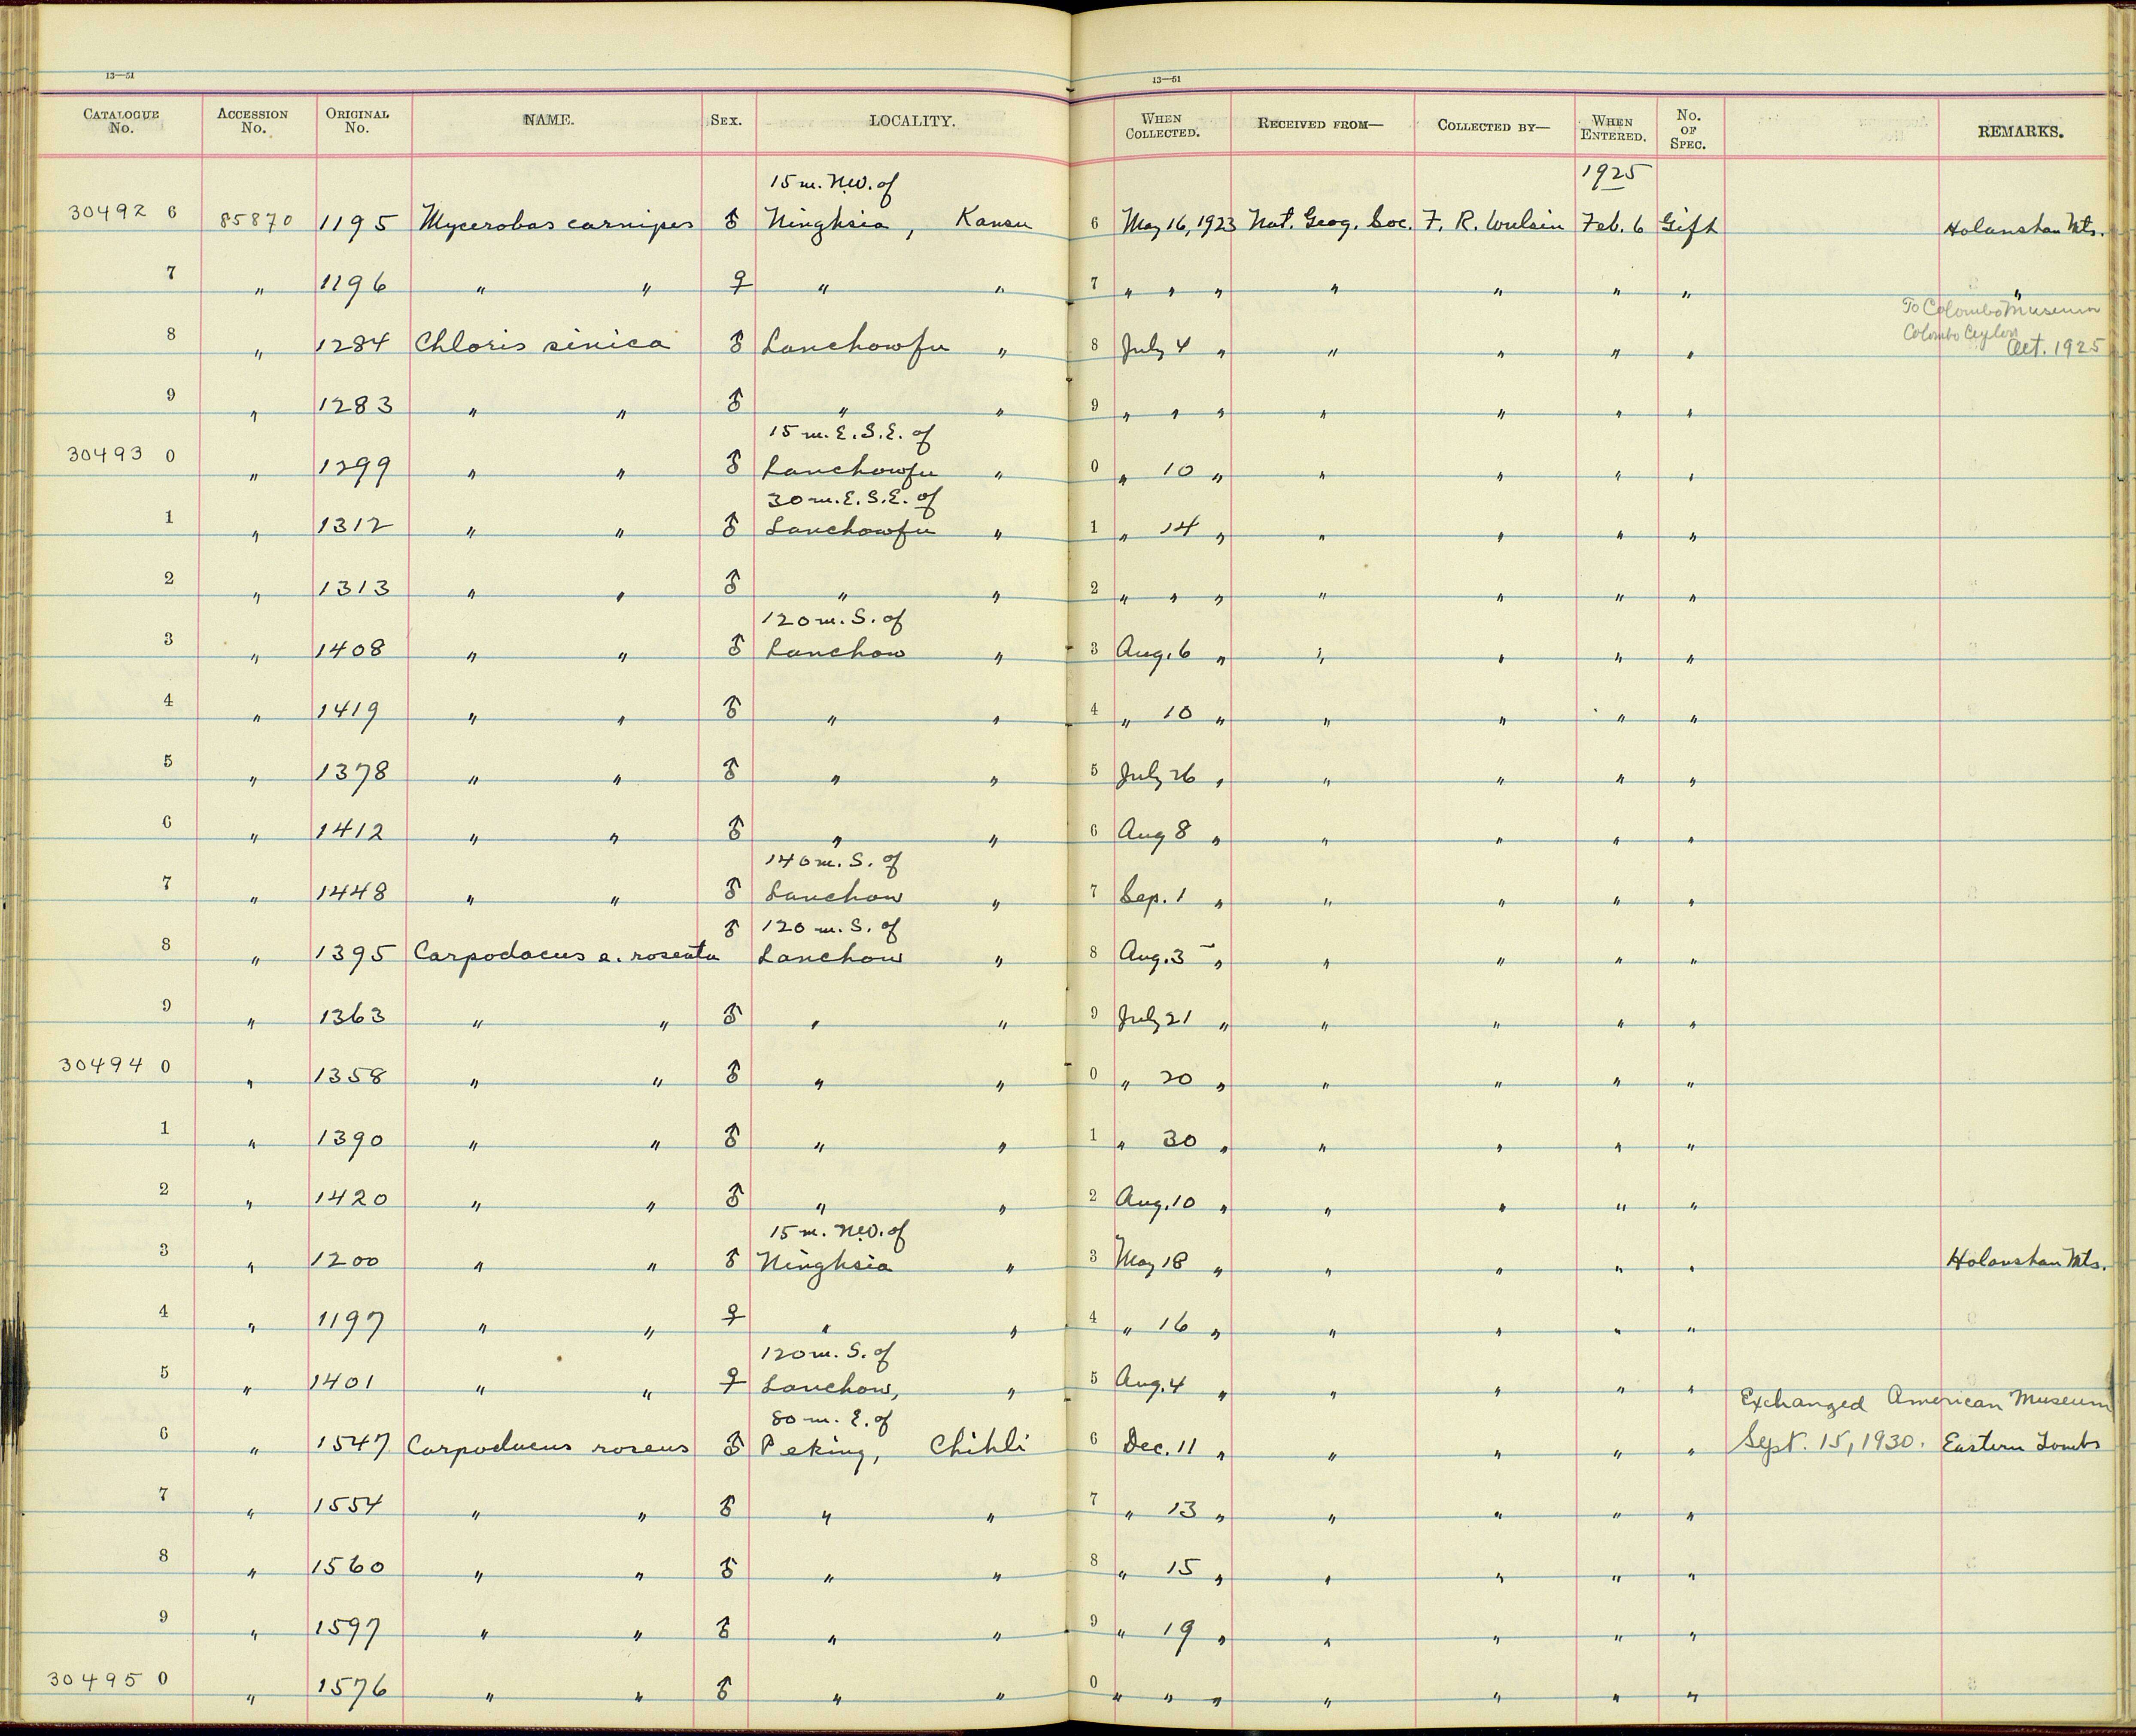 13—51
13—51
CATALOGUE No. ACCESSION No. ORIGINAL No. NAME. SEX. LOCALITY. WHEN COLLECTED. RECEIVED FROM— COLLECTED BY— WHEN ENTERED. No. OF SPEC. REMARKS.
15 m. N.W. of 1925
30492 6 85870 1195 Mycerobas carnipes ♂ Ninghsia, Kansu 6 May 16, 1923 Nat. Geog. Soc. F. R. Wulsin Feb. 6 Gift Holanshan Mts.
7 " 1196 " " ♀ " " 7 " " " " " " " "
To Colombo Museum
Colombo Ceylon
8 " 1284 Chloris sinica ♂ Lanchowfu " 8 July 4 " " " " " Oct. 1925
9 " 1283 " " ♂ " " 9 " " " " " " "
15 m. E.S.E. of
30493 0 " 1299 " " ♂ Lanchowfu " 0 " 10 " " " " "
30 m. E.S.E. of
1 " 1312 " " ♂ Lanchowfu " 1 " 14 " " " " "
2 " 1313 " " ♂ " " 2 " " " " " " "
120 m. S. of
3 " 1408 " " ♂ Lanchow " 3 Aug. 6 " " " " "
4 " 1419 " " ♂ " " 4 " 10 " " " " "
5 " 1378 " " ♂ " " 5 July 26 " " " " "
6 " 1412 " " ♂ " " 6 Aug 8 " " " " "
140 m. S. of
7 " 1448 " " ♂ Lanchow " 7 Sep. 1 " " " " "
♂ 120 m. S. of
8 " 1395 Carpodacus e. roseata Lanchow " 8 Aug. 3 " " " " "
9 " 1363 " " ♂ " " 9 July 21 " " " " "
30494 0 " 1358 " " ♂ " " 0 " 20 " " " " "
1 " 1390 " " ♂ " " 1 " 30 " " " " "
2 " 1420 " " ♂ " " 2 Aug. 10 " " " " "
15 m. N.W. of
3 " 1200 " " ♂ Ninghsia " 3 May 18 " " " " " Holanshan Mts.
4 " 1197 " " ♀ " " 4 " 16 " " " " "
120 m. S. of
5 " 1401 " " ♀ Lanchow, " 5 Aug. 4 " " " " "
80 m. E. of Exchanged American Museum
6 " 1547 Carpodacus roseus ♂ Peking, Chihli 6 Dec. 11 " " " " " Sept. 15, 1930. Eastern Tombs
7 " 1554 " " ♂ " " 7 " 13 " " " " "
8 " 1560 " " ♂ " " 8 " 15 " " " " "
9 " 1597 " " ♂ " " 9 " 19 " " " " "
30495 0 " 1576 " " ♂ " " 0 " " " " " " "